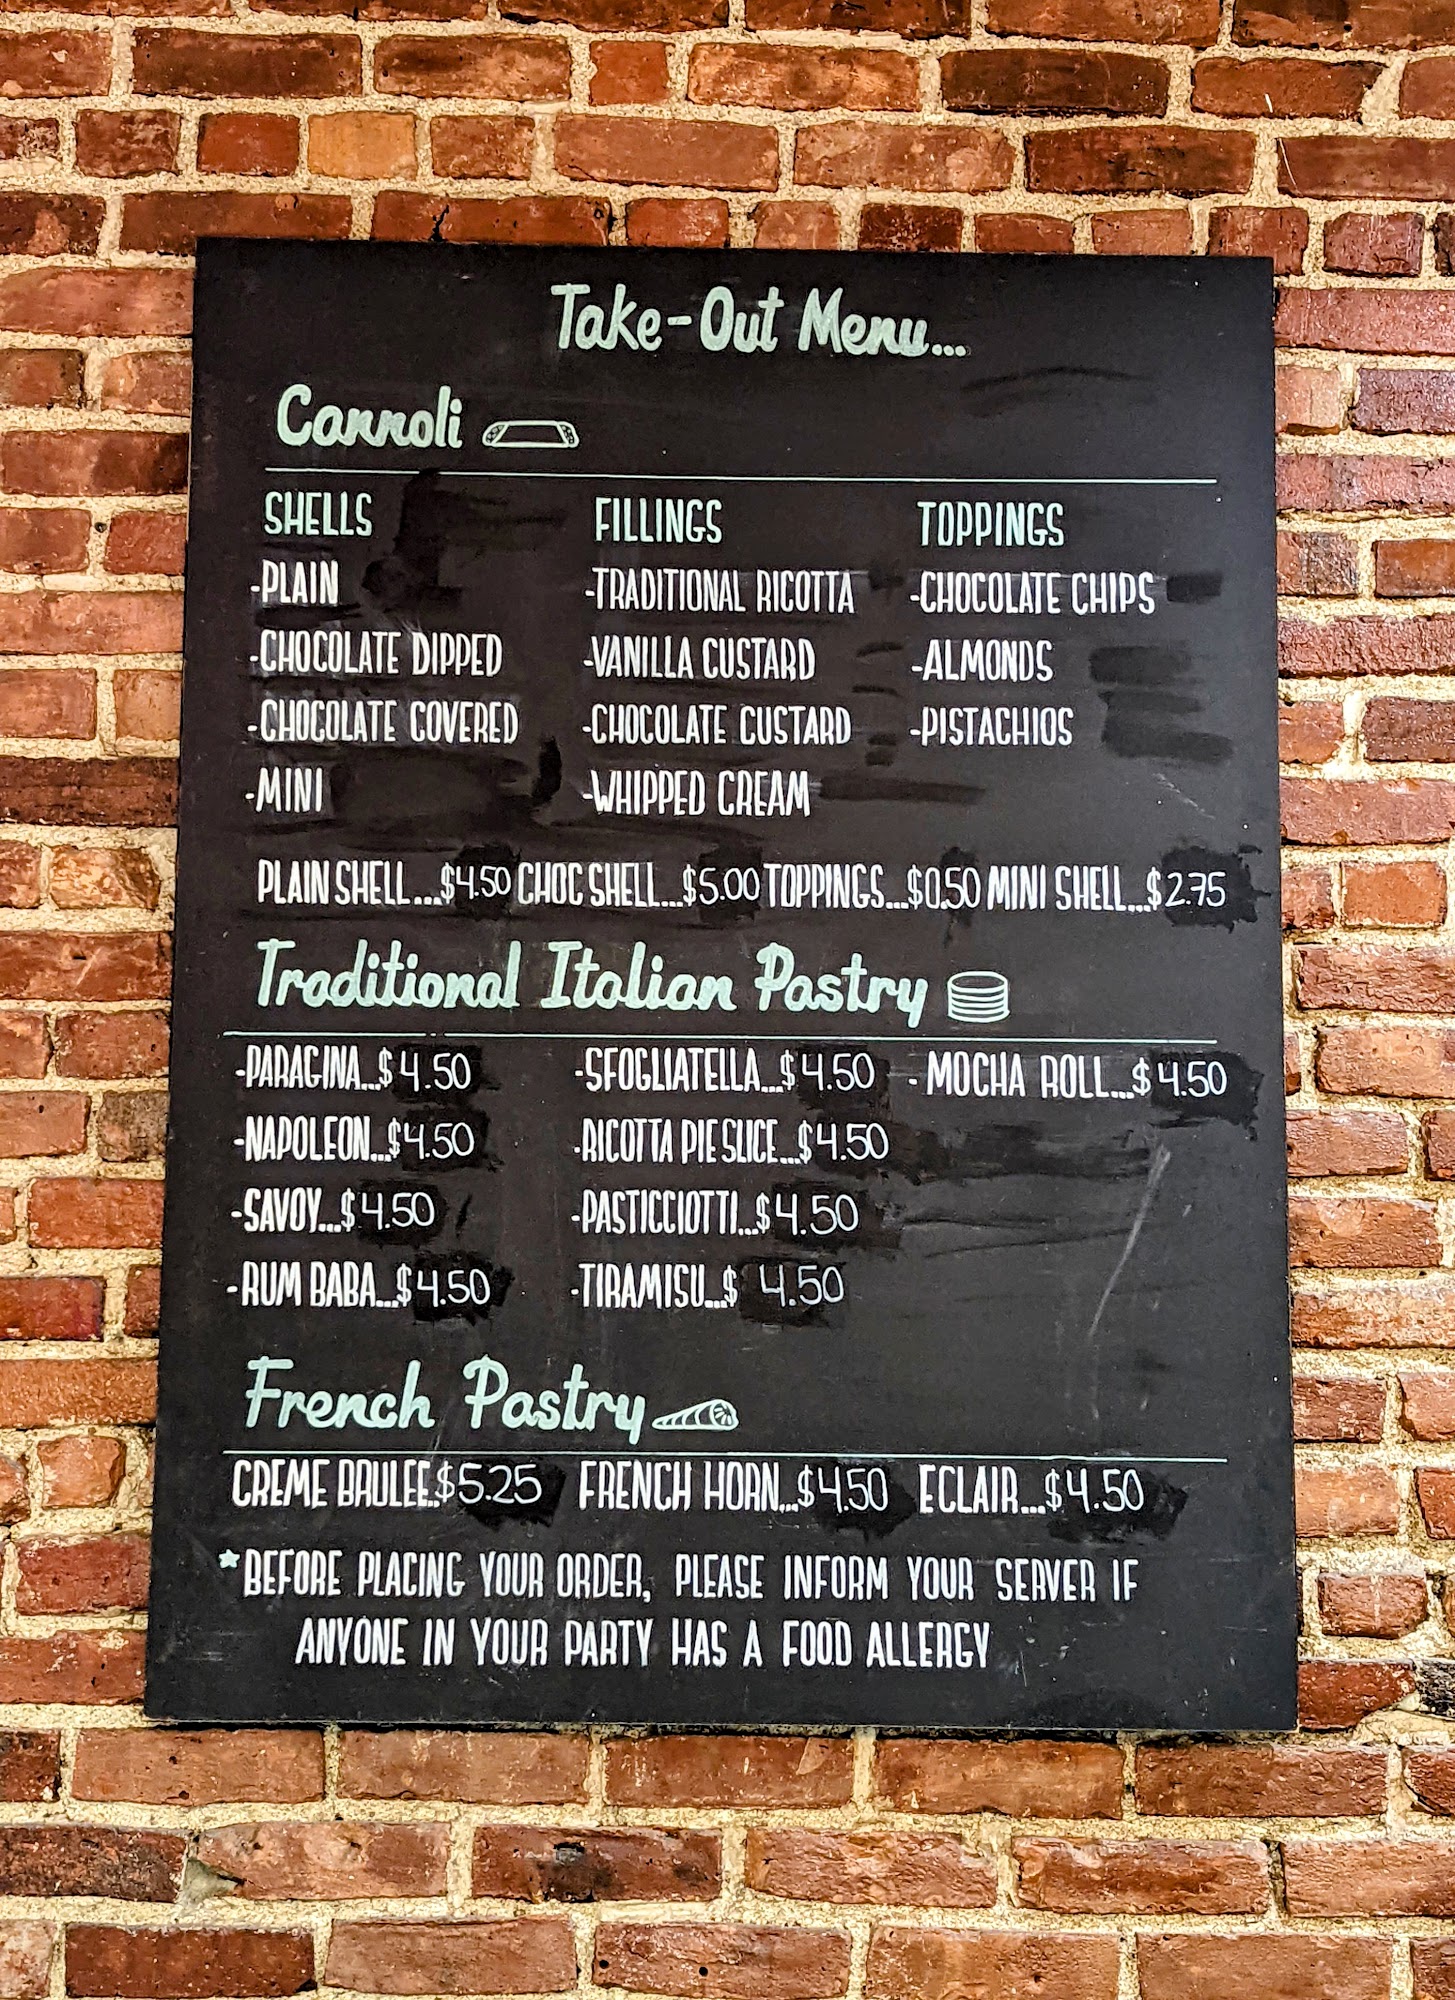 Take-Out Menu...
Cannoli
SHELLS FILLINGS TOPPINGS
-PLAIN -TRADITIONAL RICOTTA -CHOCOLATE CHIPS
-CHOCOLATE DIPPED -VANILLA CUSTARD -ALMONDS
-CHOCOLATE COVERED -CHOCOLATE CUSTARD -PISTACHIOS
-MINI -WHIPPED CREAM
PLAIN SHELL...$4.50 CHOC SHELL...$5.00 TOPPINGS...$0.50 MINI SHELL...$2.75
Traditional Italian Pastry
-PARAGINA...$4.50 -SFOGLIATELLA...$4.50 - MOCHA ROLL...$4.50
-NAPOLEON...$4.50 -RICOTTA PIE SLICE...$4.50
-SAVOY...$4.50 -PASTICCIOTTI...$4.50
-RUM BABA...$4.50 -TIRAMISU...$ 4.50
French Pastry
CREME BRULEE..$5.25 FRENCH HORN...$4.50 ECLAIR...$4.50
*BEFORE PLACING YOUR ORDER, PLEASE INFORM YOUR SERVER IF
ANYONE IN YOUR PARTY HAS A FOOD ALLERGY